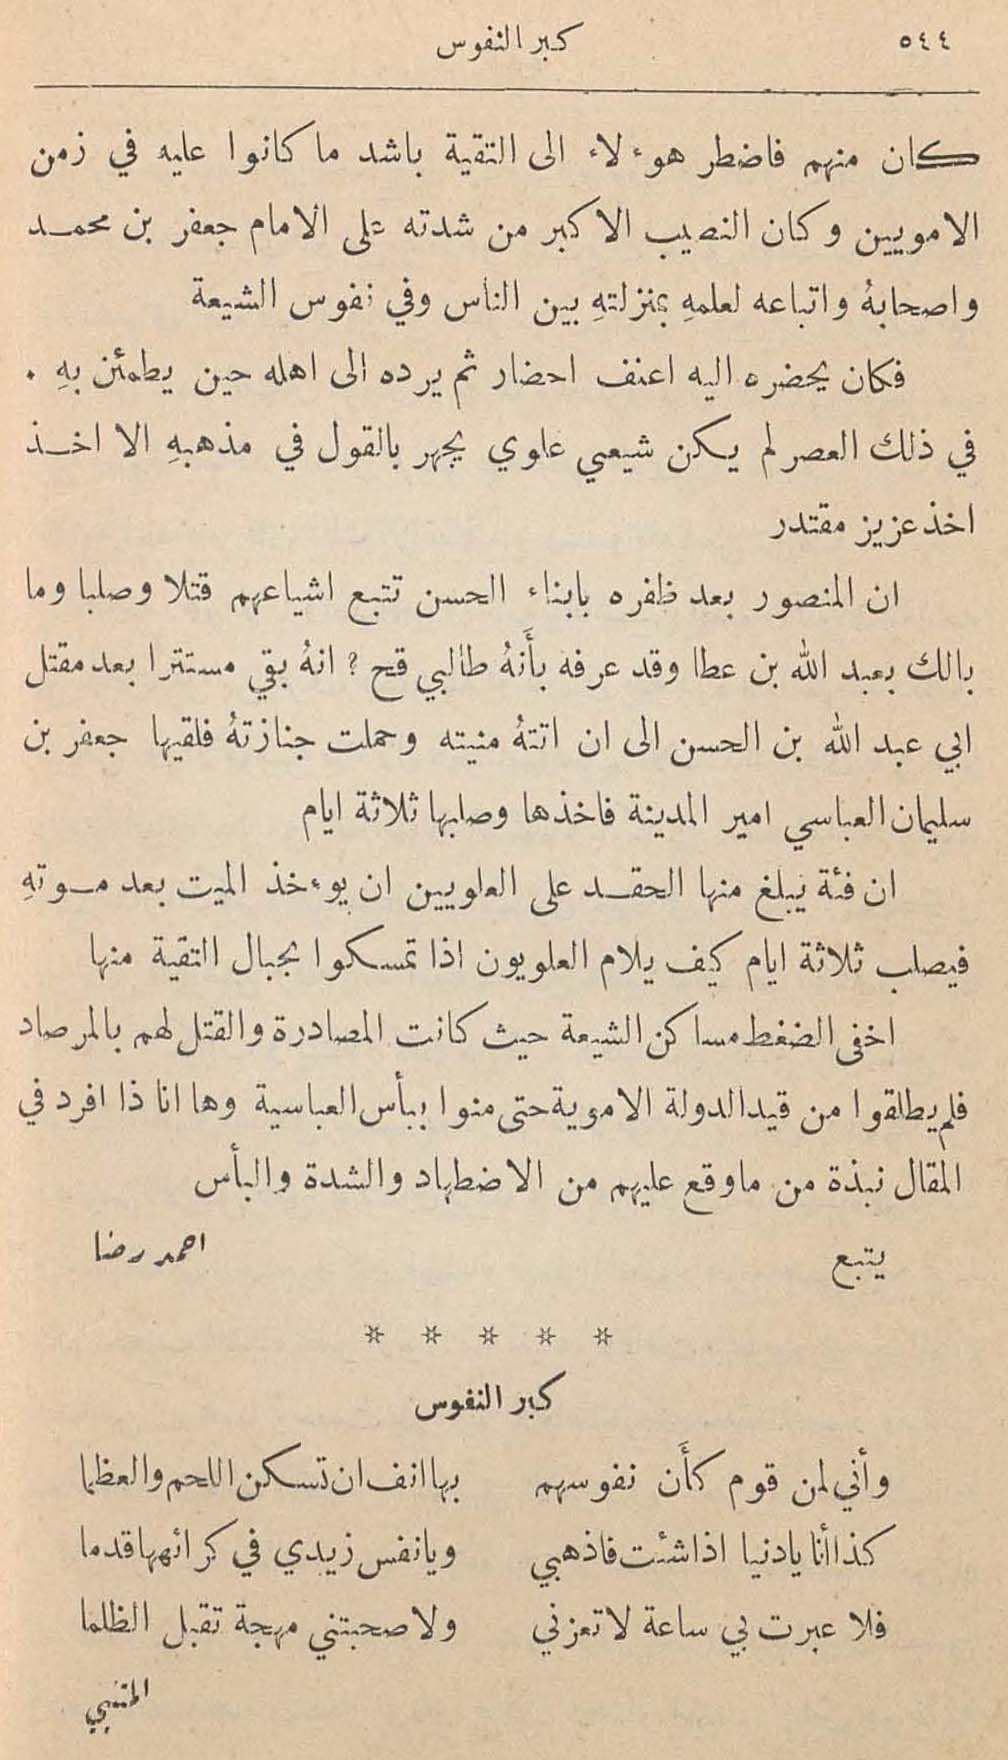 ٥٤٤
كبر النفوس
كان منهم فاضطر هوءلاء الى التقية باشد ما كانوا عليه في زمن
الامويين وكان النصيب الاكبر من شدته على الامام جعفر بن محمد
واصحابهُ واتباعه لعلمهِ بمنزلتهِ بين الناس وفي نفوس الشيعة
فكان يحضره اليه اعنف احضار ثم يرده الى اهله حين يطمئن بهِ .
في ذلك العصر لم يكن شيعي علوي يجهر بالقول في مذهبهِ الا اخذ
اخذ عزيز مقتدر
ان المنصور بعد ظفره بابناء الحسن تتبع اشياعهم قتلا وصلبا وما
بالك بعبد الله بن عطا وقد عرفه بأَنهُ طالبي قح ? انهُ بقي مستترا بعد مقتل
ابي عبد الله بن الحسن الى ان اتتهُ منيته وحملت جنازتهُ فلقيها جعفر بن
سليمان العباسي امير المدينة فاخذها وصلبها ثلاثة ايام
ان فئة يبلغ منها الحقد على العلويين ان يوءخذ الميت بعد موتهِ
فيصلب ثلاثة ايام كيف يلام العلويون اذا تمسكوا بجبال التقية منها
اخفى الضغط مساكن الشيعة حيث كانت المصادرة والقتل لهم بالمرصاد
فلم يطلقوا من قيد الدولة الاموية حتى منوا ببأس العباسية وها انا ذا افرد في
المقال نبذة من ما وقع عليهم من الاضطهاد والشدة والبأس
يتبع احمد رضا
* * * * *
كبر النفوس
وأني لمن قوم كأَن نفوسهم بها انف ان تسكن اللحم والعظما
كذا أنا يا دنيا اذا شئت فاذهبي ويا نفس زيدي في كرائهها قدما
فلا عبرت بي ساعة لا تعزني ولا صحبتني مهجة تقبل الظلما
المتنبي